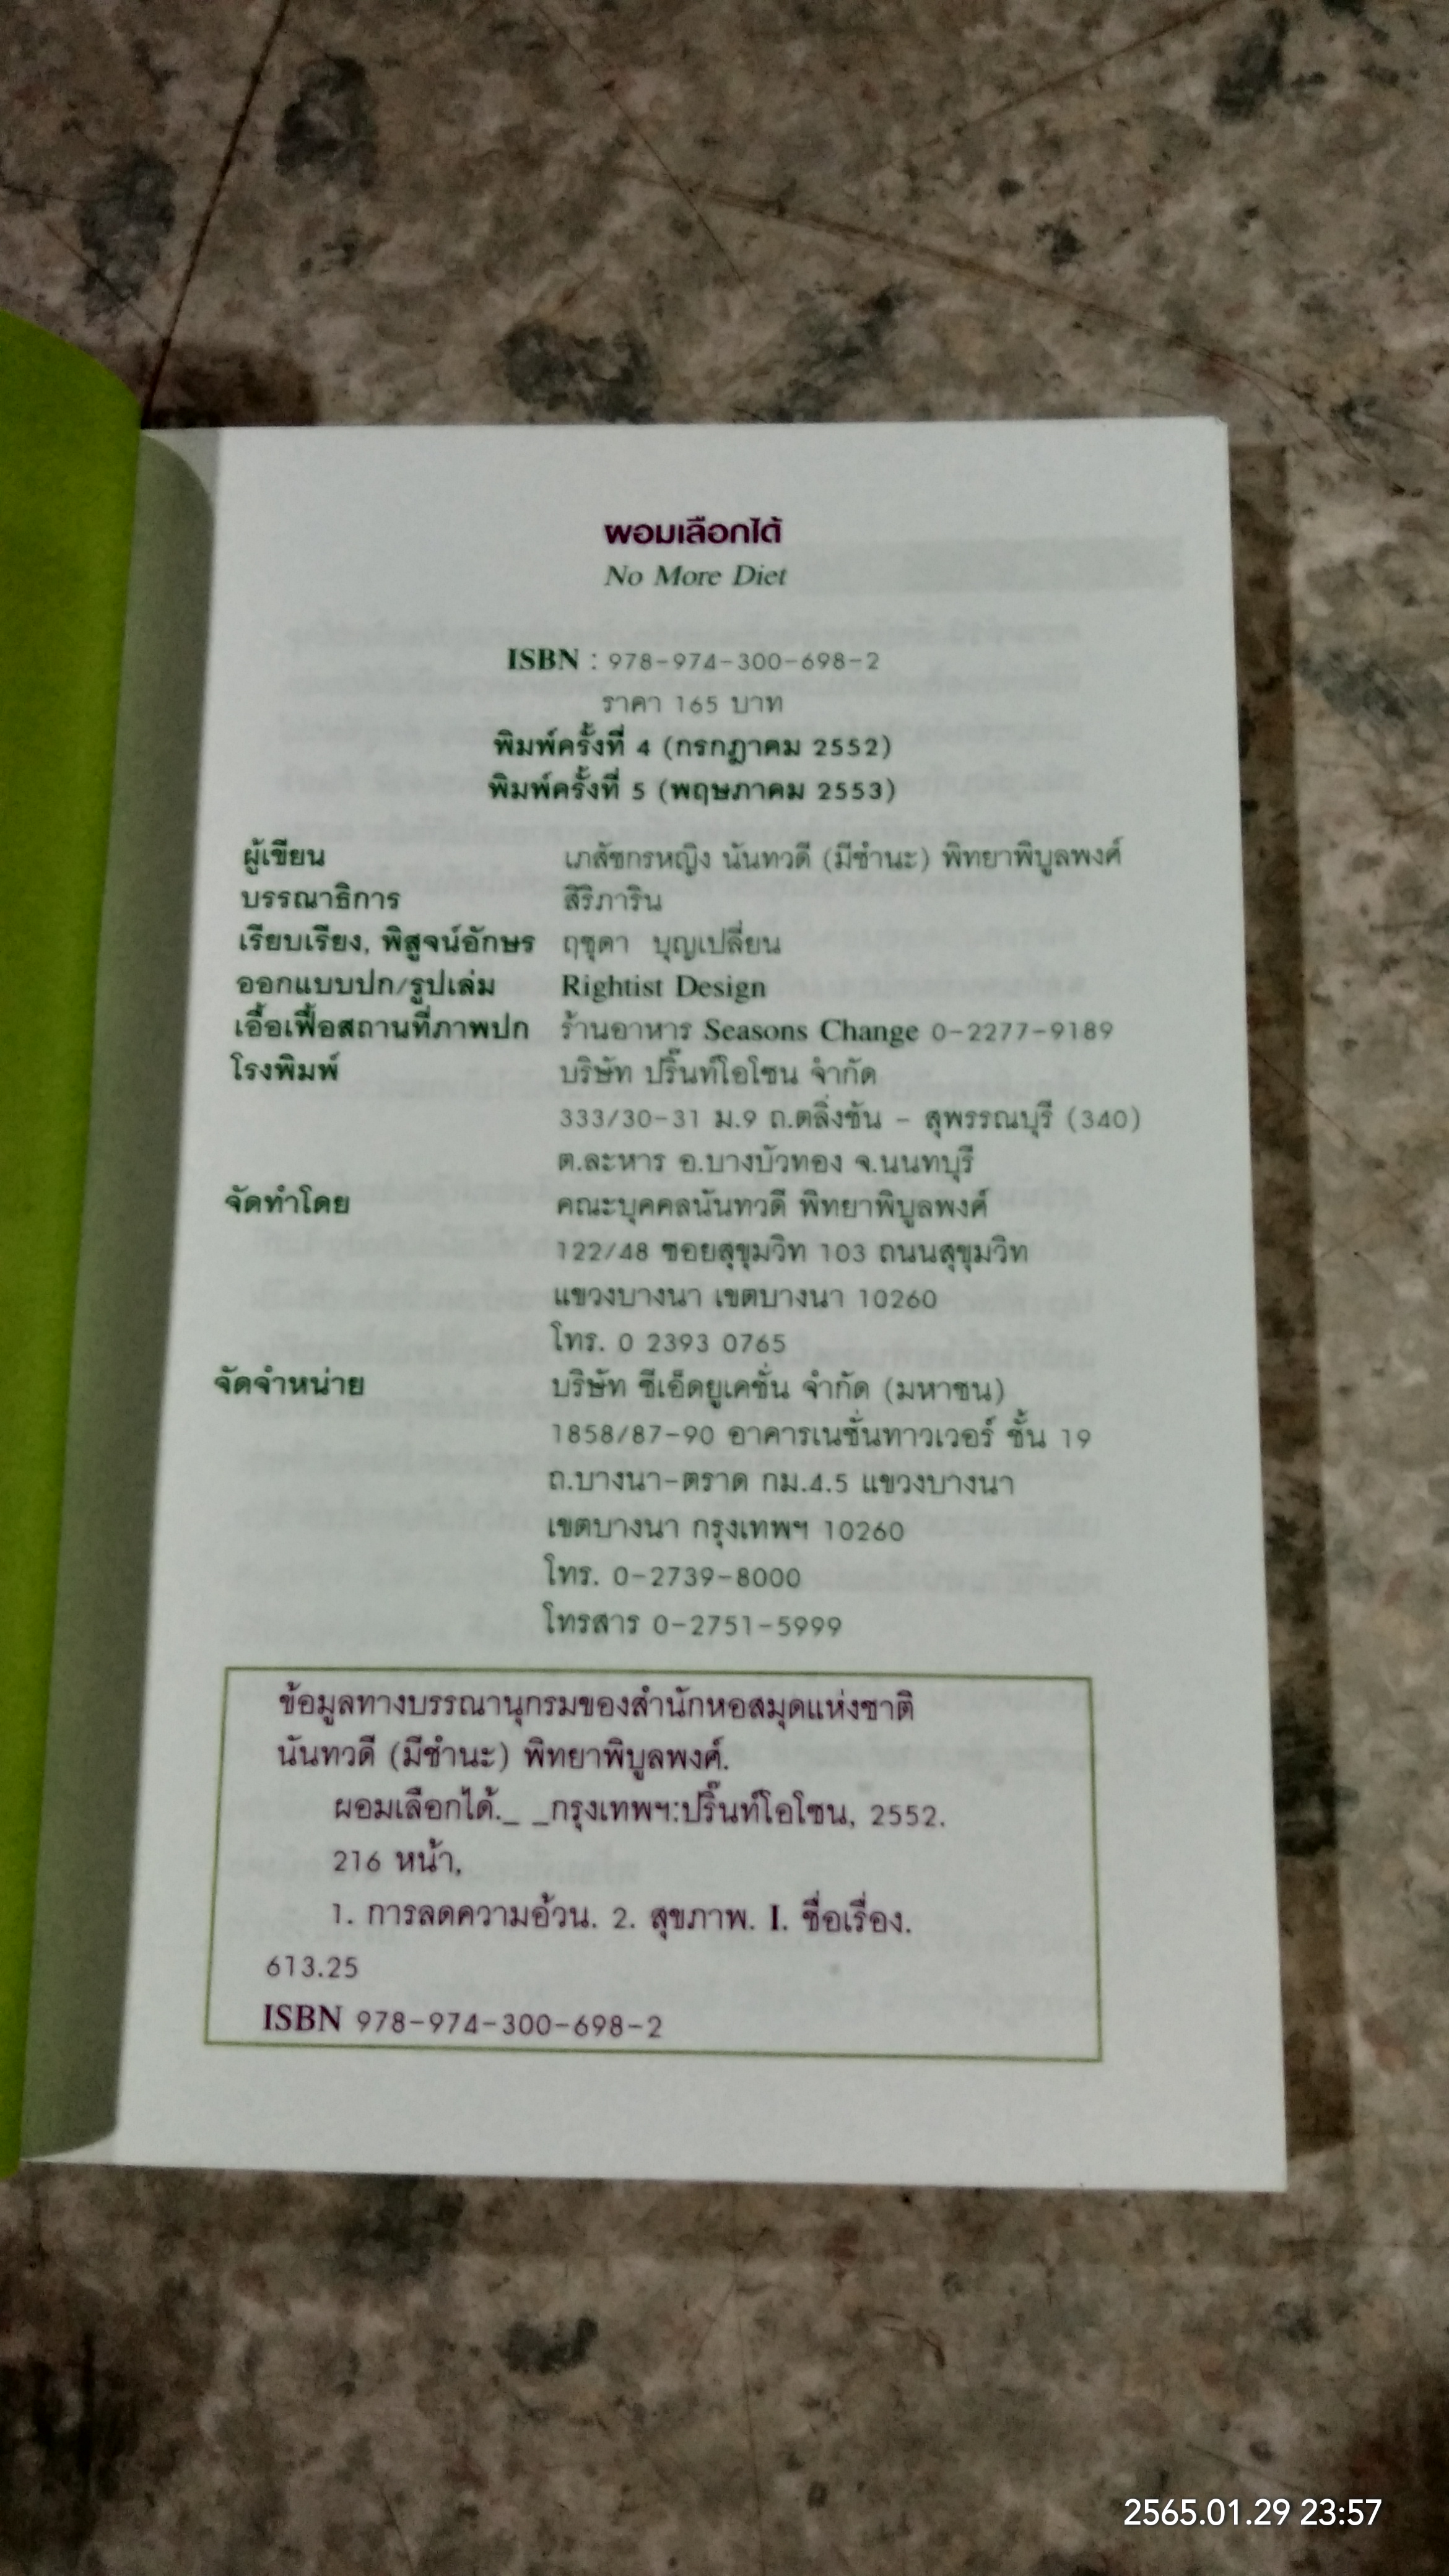 ผอมเลือกได้
No More Diet
ISBN : 978-974-300-698-2
ราคา 165 บาท
พิมพ์ครั้งที่ 4 (กรกฎาคม 2552)
พิมพ์ครั้งที่ 5 (พฤษภาคม 2553)
ผู้เขียน เภสัชกรหญิง นันทวดี (มีชำนะ) พิทยาพิบูลพงศ์
บรรณาธิการ สิริภาริน
เรียบเรียง, พิสูจน์อักษร ฤชุดา บุญเปลี่ยน
ออกแบบปก/รูปเล่ม Rightist Design
เอื้อเฟื้อสถานที่ภาพปก ร้านอาหาร Seasons Change 0-2277-9189
โรงพิมพ์ บริษัท ปริ๊นท์โอโซน จำกัด
333/30-31 ม.9 ถ.ตลิ่งชัน - สุพรรณบุรี (340)
ต.ละหาร อ.บางบัวทอง จ.นนทบุรี
จัดทำโดย คณะบุคคลนันทวดี พิทยาพิบูลพงศ์
122/48 ซอยสุขุมวิท 103 ถนนสุขุมวิท
แขวงบางนา เขตบางนา 10260
โทร. 0 2393 0765
จัดจำหน่าย บริษัท ซีเอ็ดยูเคชั่น จำกัด (มหาชน)
1858/87-90 อาคารเนชั่นทาวเวอร์ ชั้น 19
ถ.บางนา-ตราด กม.4.5 แขวงบางนา
เขตบางนา กรุงเทพฯ 10260
โทร. 0-2739-8000
โทรสาร 0-2751-5999
ข้อมูลทางบรรณานุกรมของสำนักหอสมุดแห่งชาติ
นันทวดี (มีชำนะ) พิทยาพิบูลพงศ์.
ผอมเลือกได้._ _กรุงเทพฯ:ปริ๊นท์โอโซน, 2552.
216 หน้า,
1. การลดความอ้วน. 2. สุขภาพ. I. ชื่อเรื่อง.
613.25
ISBN 978-974-300-698-2
2565.01.29 23:57